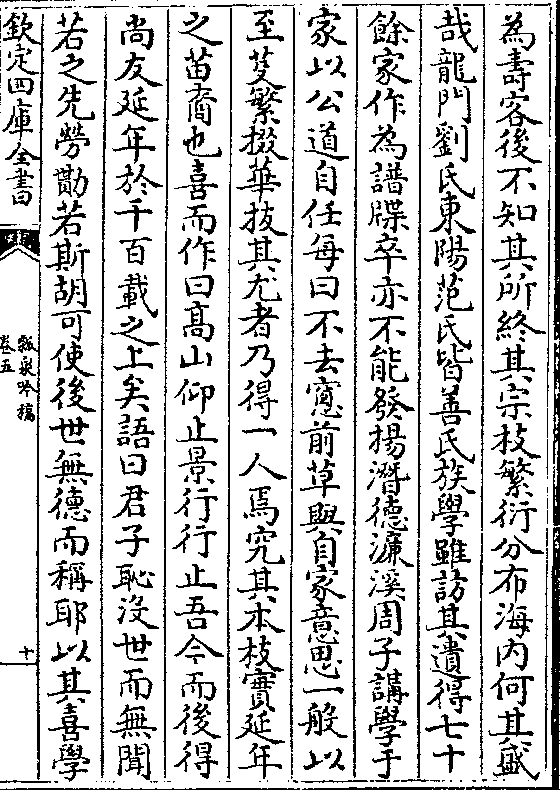 為壽客後不知其所終其宗枝繁衍分布海内何其盛
哉龍門劉氏東陽范氏皆善氏族學雖訪其遺得七十
餘家作為譜牒卒亦不能發揚潛德濓溪周子講學于
家以公道自任每曰不去窻前草與自家意思一般以
至芟繁掇華抜其尤者乃得一人焉究其本枝實延年
之苗裔也喜而作曰髙山仰止景行行止吾今而後得
尚友延年於千百載之上矣語曰君子恥没世而無聞
若之先勞勩若斯胡可使後世無德而稱耶以其喜學
欽定四庫全書
瓢泉吟稿
卷五
十